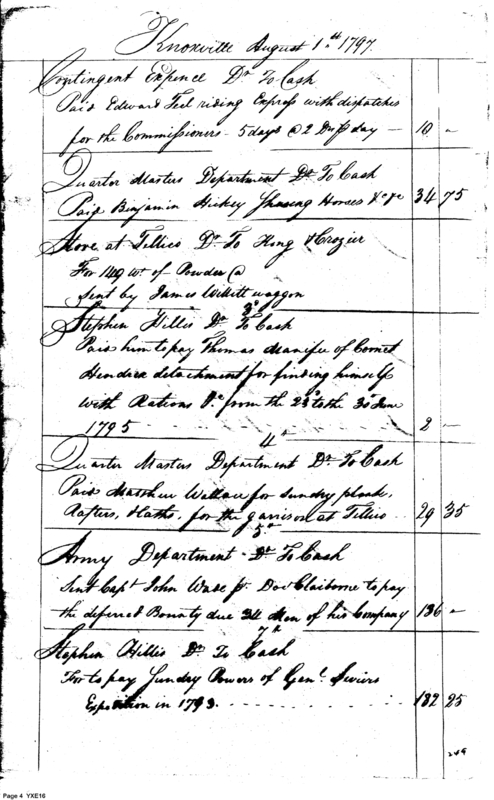 Knoxville August 1st 1797
Contingent Expence Dr To Cash
Paid Edward Teel riding Express with dispatches
for the Commissioners - 5 days @ 2 Drs p day — 10 –
Quarter Masters Department Dr To Cash
Paid Benjamin Hickey Shoeing Horses &c &c 34 75
Store at Tellico Dr To King & Crozier
For 149 wt of Powder @
Sent by James Willitt waggon
3d
Stephen Hillis Dr To Cash
Paid him to pay Thomas Manifee of Cornet
Hendrix detachment for finding himself
with Rations &c from the to the 30 June
1795 2 —
4th
Quarter Masters Department Dr To Cash
Paid Matthew Wallace for sundry plank,
Rafters, Laths, for the garrison at Tellico .. 29 35
5th
Army Department Dr To Cash
Sent Capt John Wade pr Doc Claiborne to pay
the deferred Bounty due 34 Men of his Company 136 –
7th
Stephen Hillis Dr To Cash
For to pay Sundry Powers of Genl Seviers
Expedition in 1793 . . . . . . . . . . . 182 25
249
Page 4 YXE16